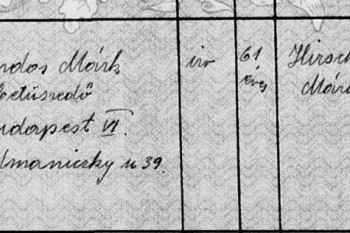 ndos Márk
betűszedő
udapest VI.
dmaniczky u 39.
izr
61
éves
Hirsc
Mári